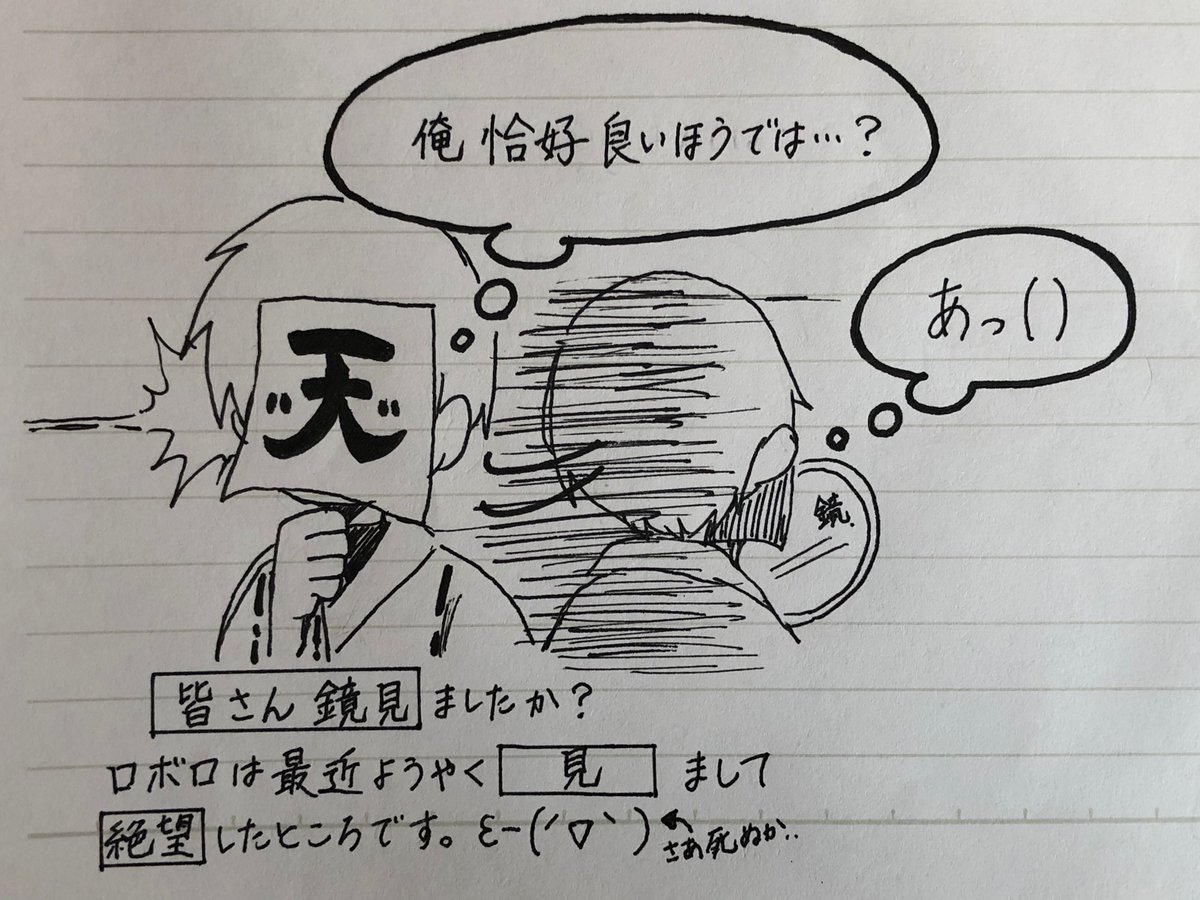 俺 恰好良いほうでは…?
あっ()
天
鏡
皆さん 鏡見ましたか?
ロボロは最近ようやく 見 まして
絶望したところです。ε-(´▽`)
さあ死ぬか..